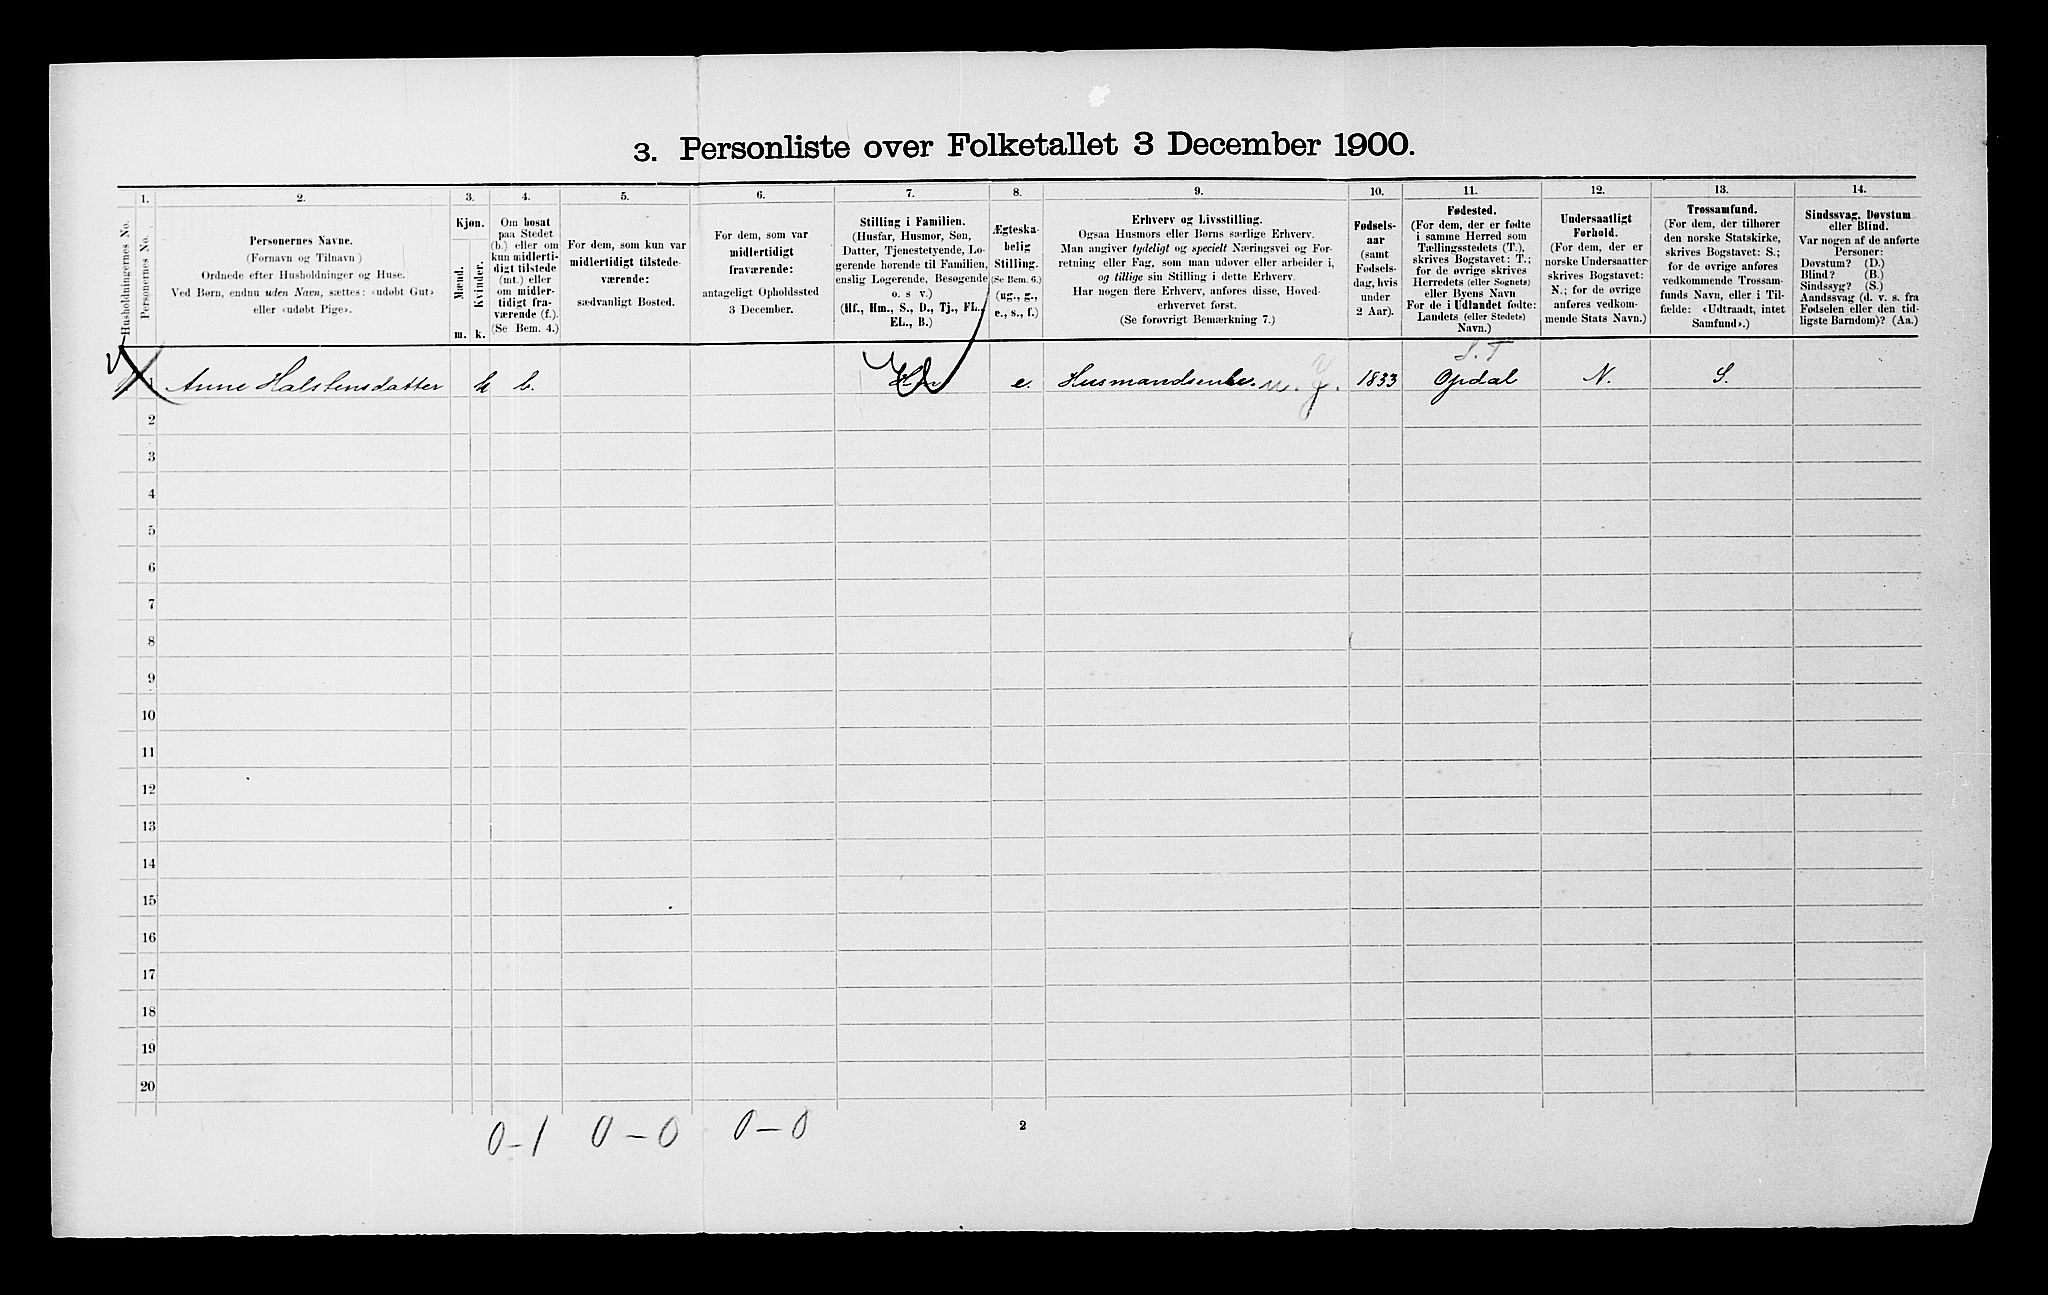 3. Personliste over Folketallet 3 December 1900.
1.
Husholdningernes No.
Personernes No.
2.
Personernes Navne.
(Fornavn og Tilnavn )
Ordnede efter Husholdninger og Huse.
Ved Børn, endnu uden Navn, sættes: «udøbt Gut»
eller «udøbt Pige».
3.
Kjøn.
Mænd.
Kvinder.
m. k.
4.
Om bosat
paa Stedet
(b.) eller om
kun midlerti-
digt tilstede
(mt.) eller
om midler-
tidigt fra-
værende (f.).
(Se Bem. 4.)
5.
For dem, som kun var
midlertidigt tilstede-
værende:
sædvanligt Bosted.
6.
For dem, som var
midlertidigt
fraværende:
antageligt Opholdssted
3 December.
7.
Stilling i Familien.
(Husfar, Husmor, Søn,
Datter, Tjenestetyende, Lo-
gerende hørende til Familien,
enslig Logerende, Besøgende
o. s v.)
(Hf., Hm., S., D., Tj., FL.,
EL., B.)
8.
Ægteska-
belig
Stilling.
(Se Bem. 6.)
(ug., g.,
e., s., f.)
9.
Erhverv og Livsstilling.
Ogsaa Husmors eller Børns særlige Erhverv.
Man angiver tydeligt og specielt Næringsvei og For-
retning eller Fag, som man udøver eller arbeider i,
og tillige sin Stilling i dette Erhverv.
Har nogen flere Erhverv, anføres disse, Hoved-
erhvervet først.
(Se forøvrigt Bemærkning 7.)
10.
Fødsels-
aar
(samt
Fødsels-
dag, hvis
under
2 Aar).
11.
Fødested.
(For dem, der er fødte
i samme Herred som
Tællingsstedets (T.),
skrives Bogstavet: T.;
for de øvrige skrives
Herredets (eller Sognets)
eller Byens Navn
For de i Udlandet fødte:
Landets (eller Stedets)
Navn.)
12.
Undersaatligt
Forhold.
(For dem, der er
norske Undersaatter
skrives Bogstavet:
N.; for de øvrige
anføres vedkom-
mende Stats Navn.)
13.
Trossamfund.
(For dem, der tilhører
den norske Statskirke,
skrives Bogstavet: S.;
for de øvrige anføres
vedkommende Trossam-
funds Navn, eller i Til-
fælde: «Udtraadt, intet
Samfund».)
14.
Sindssvag, Døvstum
eller Blind.
Var nogen af de anførte
Personer:
Døvstum? (D.)
Blind? (B.)
Sindssyg? (S.)
Aandssvag (d. v. s. fra
Fødselen eller den tid-
ligste Barndom)? (Aa.)
S. T
1 Anne Halstensdatter k b. e. Husmandsenke. 1833 Opdal N. S.
2
3
4
5
6
7
8
9
10
11
12
13
14
15
16
17
18
19
20
0-1 0-0 0-0
2